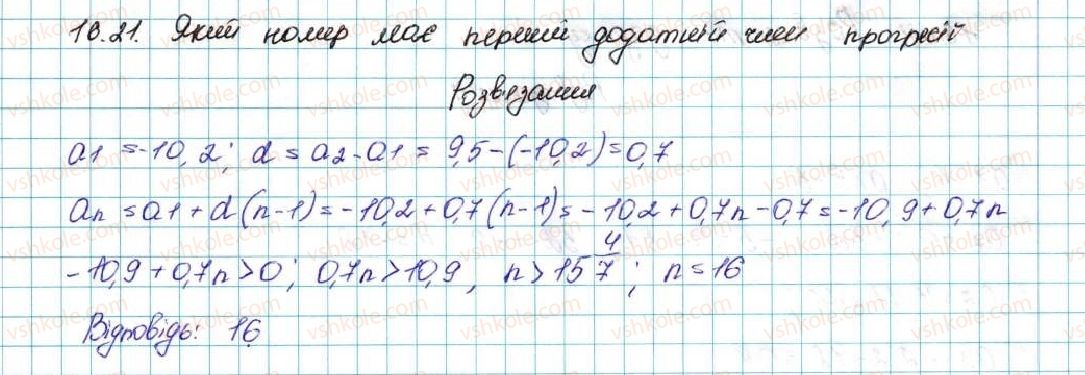 16.21. Який номер має перший додатній член прогресії
Розв'язання
a1 = -10,2; d = a2 - a1 = 9,5 - (-10,2) = 0,7
an = a1 + d(n-1) = -10,2 + 0,7(n-1) = -10,2 + 0,7n - 0,7 = -10,9 + 0,7n
-10,9 + 0,7n > 0; 0,7n > 10,9, n > 15 4/7; n = 16
Відповідь: 16